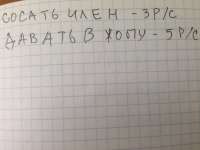 СОСАТЬ ЧЛЕН - 3Р/С
ДАВАТЬ В ЖОПУ - 5Р/С